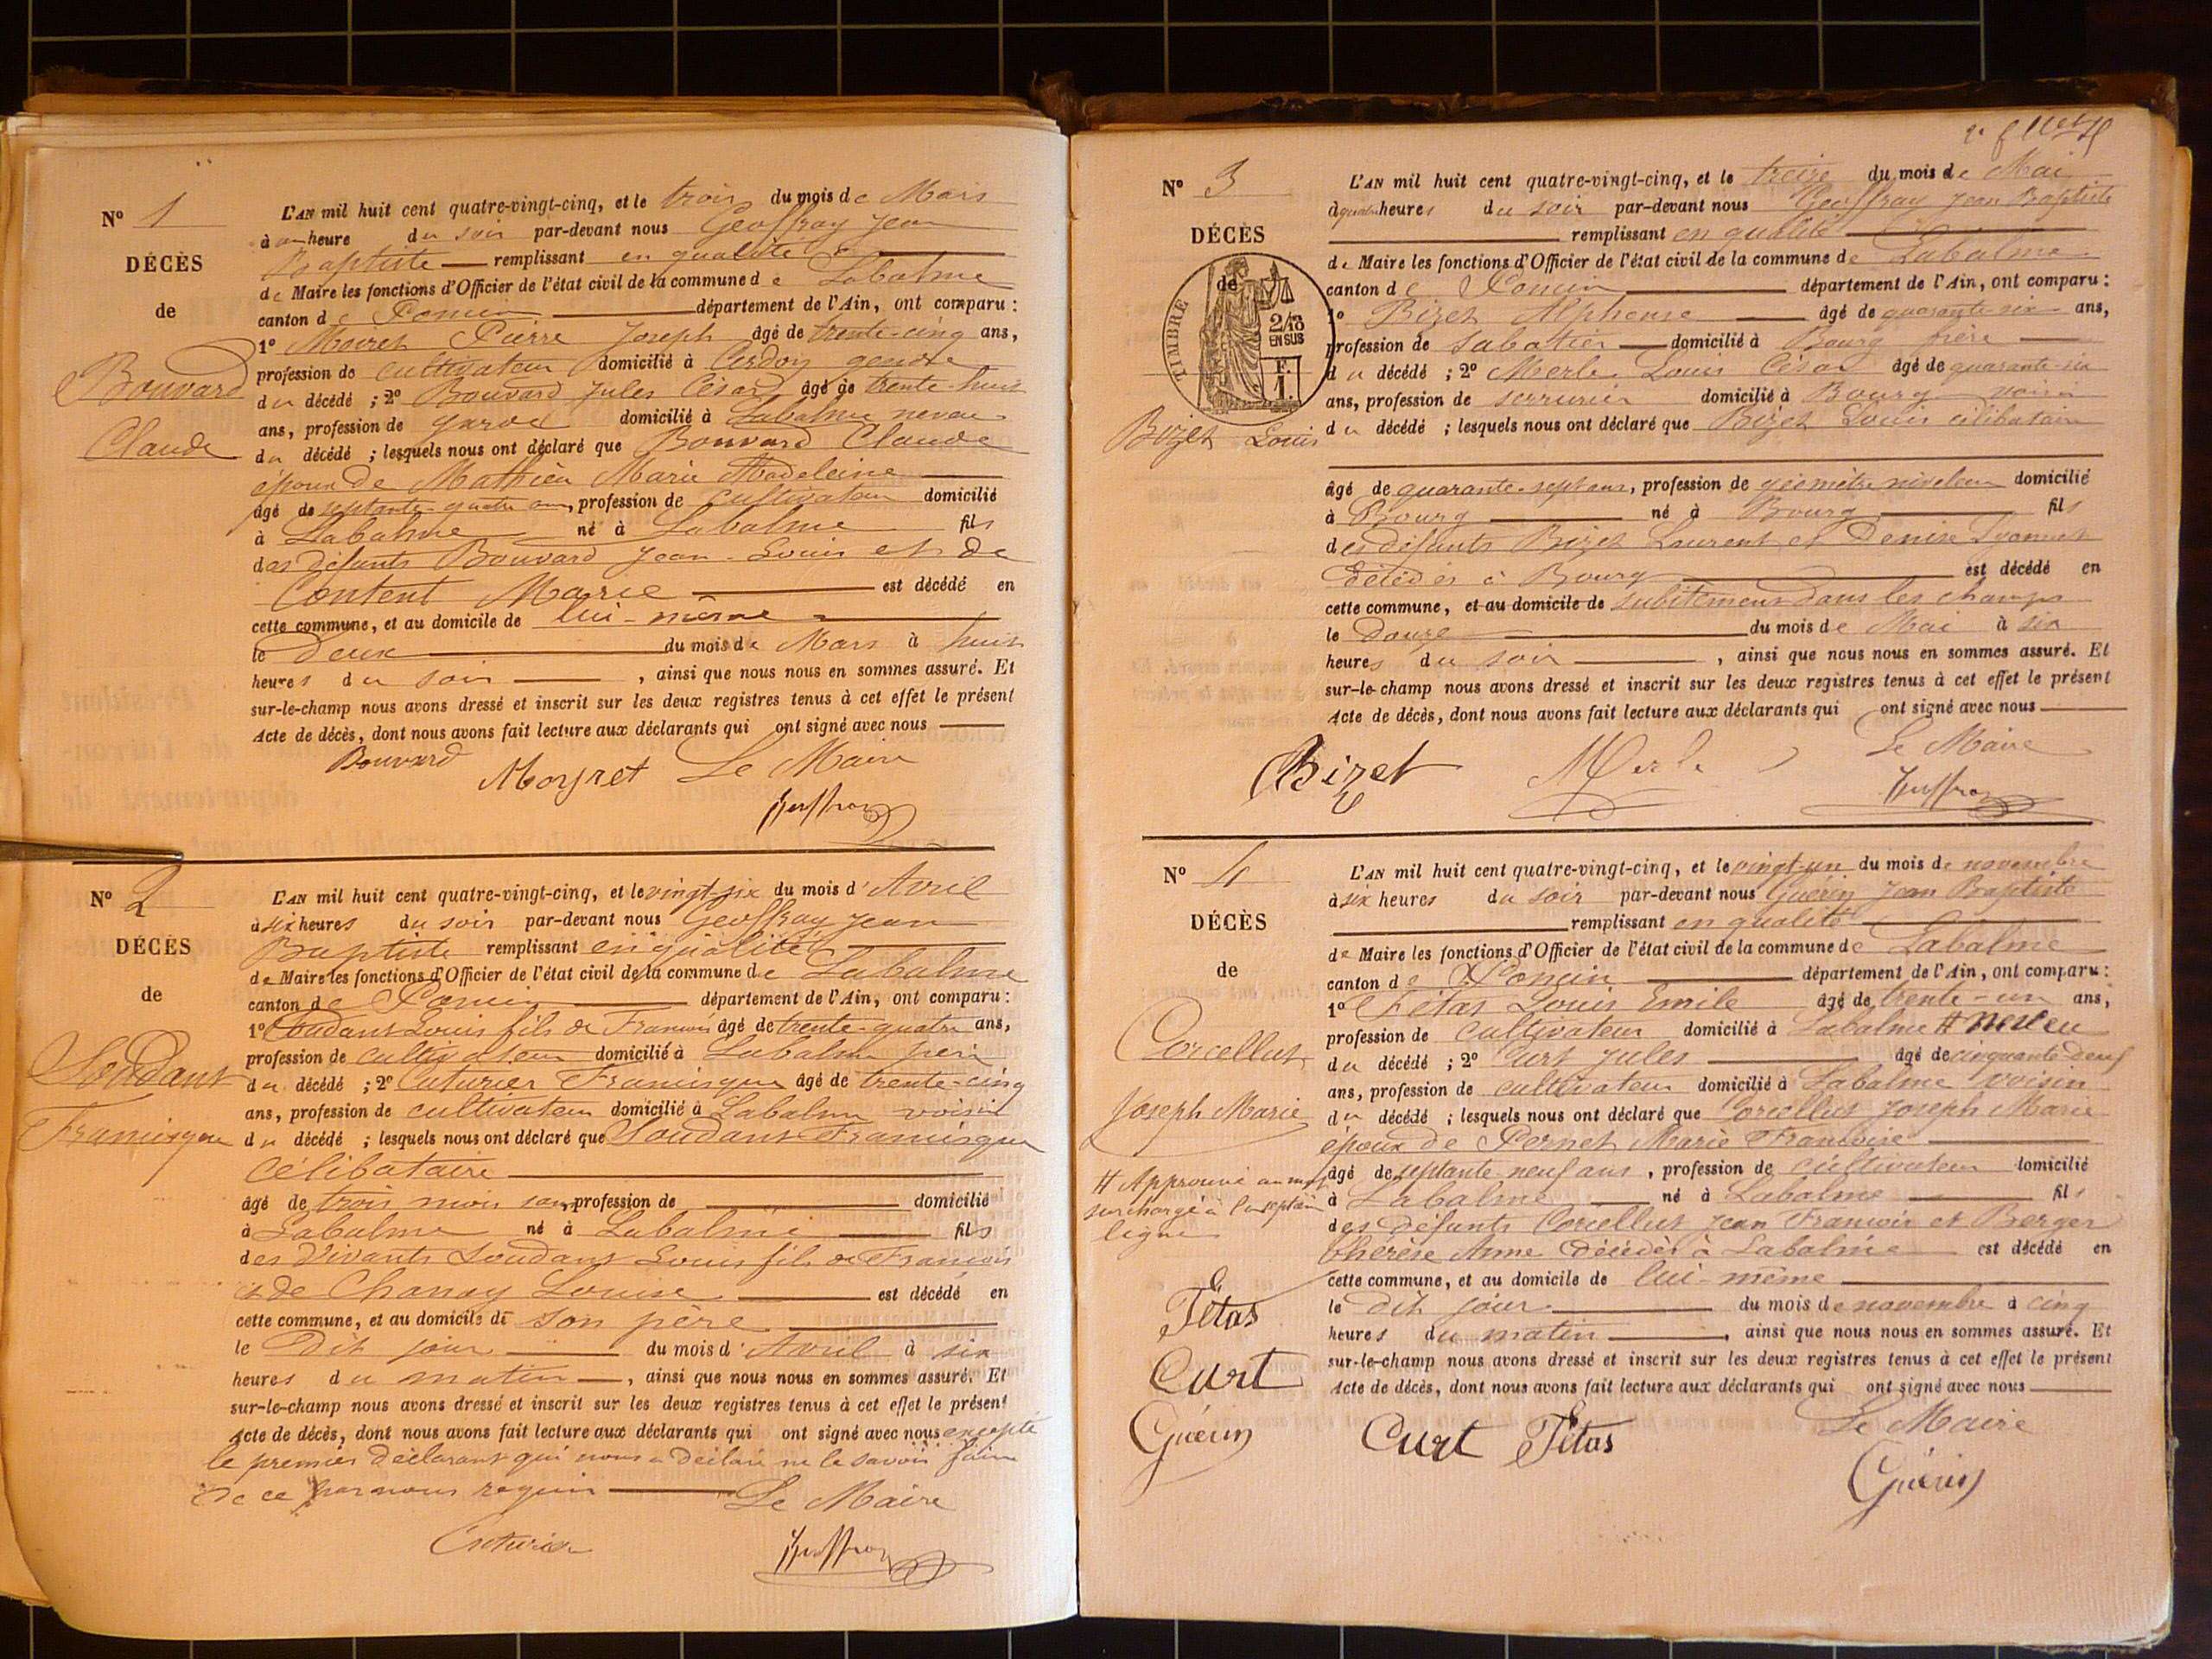 N° 1
DÉCÈS
de
Bouvard
Claude
L'AN mil huit cent quatre-vingt-cinq, et le trois du mois de Mars
à une heure du soir par-devant nous Geoffray Jean
Baptiste remplissant en qualité
de Maire les fonctions d'Officier de l'état civil de la commune de Labalme
canton de Poncin département de l'Ain, ont comparu :
1° Moiret Pierre Joseph âgé de trente-cinq ans,
profession de cultivateur domicilié à Cerdon gendre
du décédé ; 2° Bouvard Jules César âgé de trente-huit
ans, profession de garde domicilié à Labalme neveu
du décédé ; lesquels nous ont déclaré que Bouvard Claude
époux de Mathieu Marie Madeleine
âgé de septante-quatre ans, profession de cultivateur domicilié
à Labalme né à Labalme fils
des défunts Bouvard Jean-Louis et de
Content Marie est décédé en
cette commune, et au domicile de lui-même
le deux du mois de Mars à huit
heures du soir , ainsi que nous nous en sommes assuré. Et
sur-le-champ nous avons dressé et inscrit sur les deux registres tenus à cet effet le présent
Acte de décès, dont nous avons fait lecture aux déclarants qui ont signé avec nous
Bouvard Moyret Le Maire
Geoffray
N° 2
DÉCÈS
de
Soudant
Francisque
L'AN mil huit cent quatre-vingt-cinq, et le vingt-six du mois d'Avril
à six heures du soir par-devant nous Geoffray Jean
Baptiste remplissant en qualité
de Maire les fonctions d'Officier de l'état civil de la commune de Labalme
canton de Poncin département de l'Ain, ont comparu :
1° Soudant Louis fils de François âgé de trente-quatre ans,
profession de cultivateur domicilié à Labalme père
du décédé ; 2° Cuturier Francisque âgé de trente-cinq
ans, profession de cultivateur domicilié à Labalme voisin
du décédé ; lesquels nous ont déclaré que Soudant Francisque
célibataire
âgé de trois mois sans profession de domicilié
à Labalme né à Labalme fils
des vivants Soudant Louis fils de François
et de Chanay Louise est décédé en
cette commune, et au domicile de son père
le dit jour du mois d'Avril à six
heures du matin , ainsi que nous nous en sommes assuré. Et
sur-le-champ nous avons dressé et inscrit sur les deux registres tenus à cet effet le présent
Acte de décès, dont nous avons fait lecture aux déclarants qui ont signé avec nous excepté
le premier déclarant qui nous a déclaré ne le savoir faire
de ce par nous requis Le Maire
Cuturier Geoffray
N° 3
DÉCÈS
de
TIMBRE
2/10
EN SUS
F.
1.
Bizet Louis
L'AN mil huit cent quatre-vingt-cinq, et le treize du mois de Mai
à quatre heures du soir par-devant nous Geoffray Jean Baptiste
remplissant en qualité
de Maire les fonctions d'Officier de l'état civil de la commune de Labalme
canton de Poncin département de l'Ain, ont comparu :
1° Bizet Alphonse âgé de quarante-six ans,
profession de sabotier domicilié à Bourg frère
du décédé ; 2° Merle Louis César âgé de quarante-six
ans, profession de serrurier domicilié à Bourg voisin
du décédé ; lesquels nous ont déclaré que Bizet Louis célibataire
âgé de quarante-sept ans, profession de géomètre niveleur domicilié
à Bourg né à Bourg fils
des défunts Bizet Laurent et Denise
décédés à Bourg est décédé en
cette commune, et au domicile de subitement dans les champs
le douze du mois de Mai à six
heures du soir , ainsi que nous nous en sommes assuré. Et
sur-le-champ nous avons dressé et inscrit sur les deux registres tenus à cet effet le présent
Acte de décès, dont nous avons fait lecture aux déclarants qui ont signé avec nous
Bizet Merle Le Maire
Geoffray
N° 4
DÉCÈS
de
Corcellut
Joseph Marie
# Approuvé au mot
surchargé à la septième
ligne
Fétas
Curt
Guérin
L'AN mil huit cent quatre-vingt-cinq, et le vingt-un du mois de novembre
à six heures du soir par-devant nous Guérin Jean Baptiste
remplissant en qualité
de Maire les fonctions d'Officier de l'état civil de la commune de Labalme
canton de Poncin département de l'Ain, ont comparu :
1° Fétas Louis Emile âgé de trente-un ans,
profession de cultivateur domicilié à Labalme # neveu
du décédé ; 2° Curt Jules âgé de cinquante-deux
ans, profession de cultivateur domicilié à Labalme voisin
du décédé ; lesquels nous ont déclaré que Corcellut Joseph Marie
époux de Pernet Marie Françoise
âgé de septante-neuf ans , profession de cultivateur domicilié
à Labalme né à Labalme fils
des défunts Corcellut Jean François et Berger
Thérèse Anne décédés à Labalme est décédé en
cette commune, et au domicile de lui-même
le dit jour du mois de novembre à cinq
heures du matin , ainsi que nous nous en sommes assuré. Et
sur-le-champ nous avons dressé et inscrit sur les deux registres tenus à cet effet le présent
Acte de décès, dont nous avons fait lecture aux déclarants qui ont signé avec nous
Curt Fétas Le Maire
Guérin